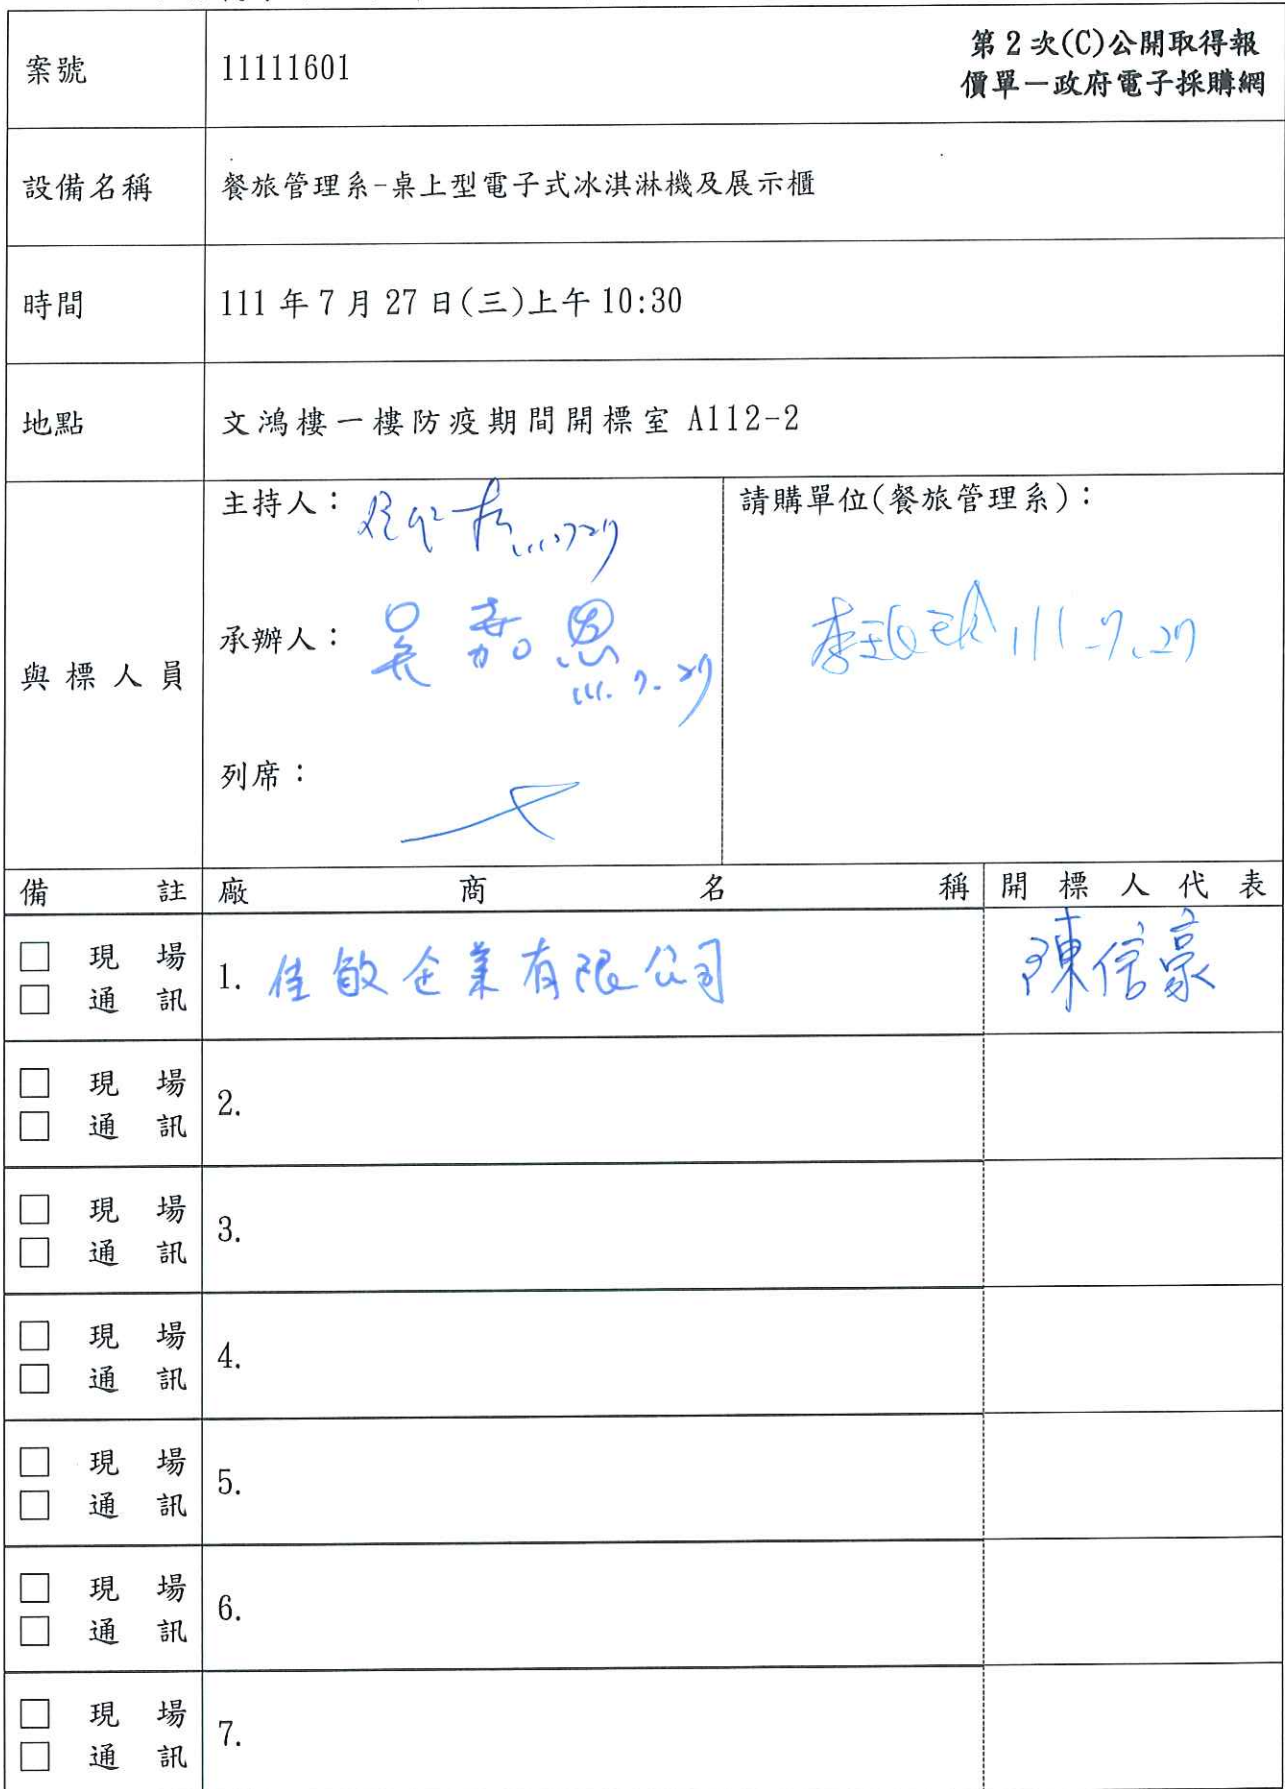 案號 11111601 第2次(C)公開取得報
價單－政府電子採購網
設備名稱 餐旅管理系-桌上型電子式冰淇淋機及展示櫃
時間 111年7月27日(三)上午10:30
地點 文鴻樓一樓防疫期間開標室 A112-2
與標人員
主持人： 111.7.27
承辦人：吳嘉恩 111.7.27
列席：
請購單位(餐旅管理系)：
李 111.7.27
備註 廠商名稱 開標人代表
□ 現場
□ 通訊
1. 佳敏企業有限公司 陳信豪
□ 現場
□ 通訊
2.
□ 現場
□ 通訊
3.
□ 現場
□ 通訊
4.
□ 現場
□ 通訊
5.
□ 現場
□ 通訊
6.
□ 現場
□ 通訊
7.